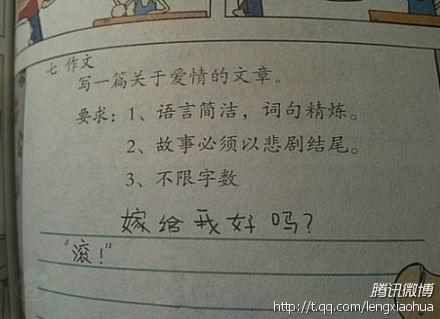 七 作文
写一篇关于爱情的文章。
要求：1、语言简洁，词句精炼。
2、故事必须以悲剧结尾。
3、不限字数
嫁给我好吗？
“滚！”
腾讯微博
http://t.qq.com/lengxiaohua